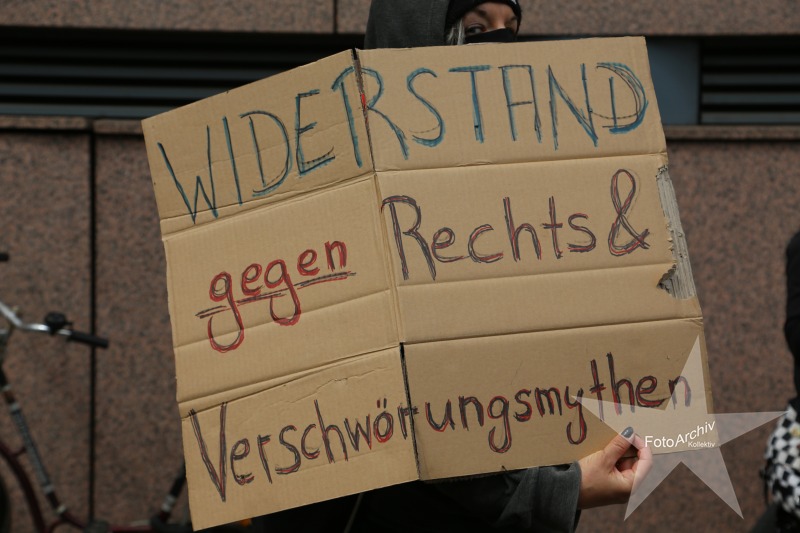 WIDERSTAND
gegen Rechts &
Verschwörungsmythen
FotoArchiv
Kollektiv